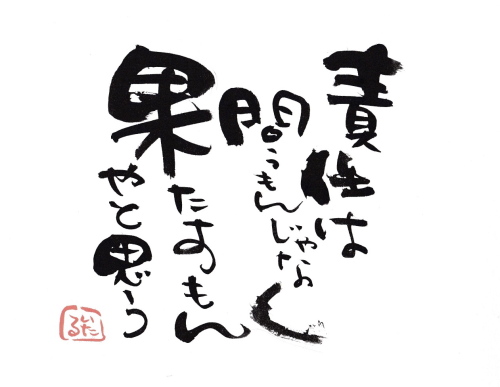 責任は
問うもんじゃなく
果たすもん
やと思う